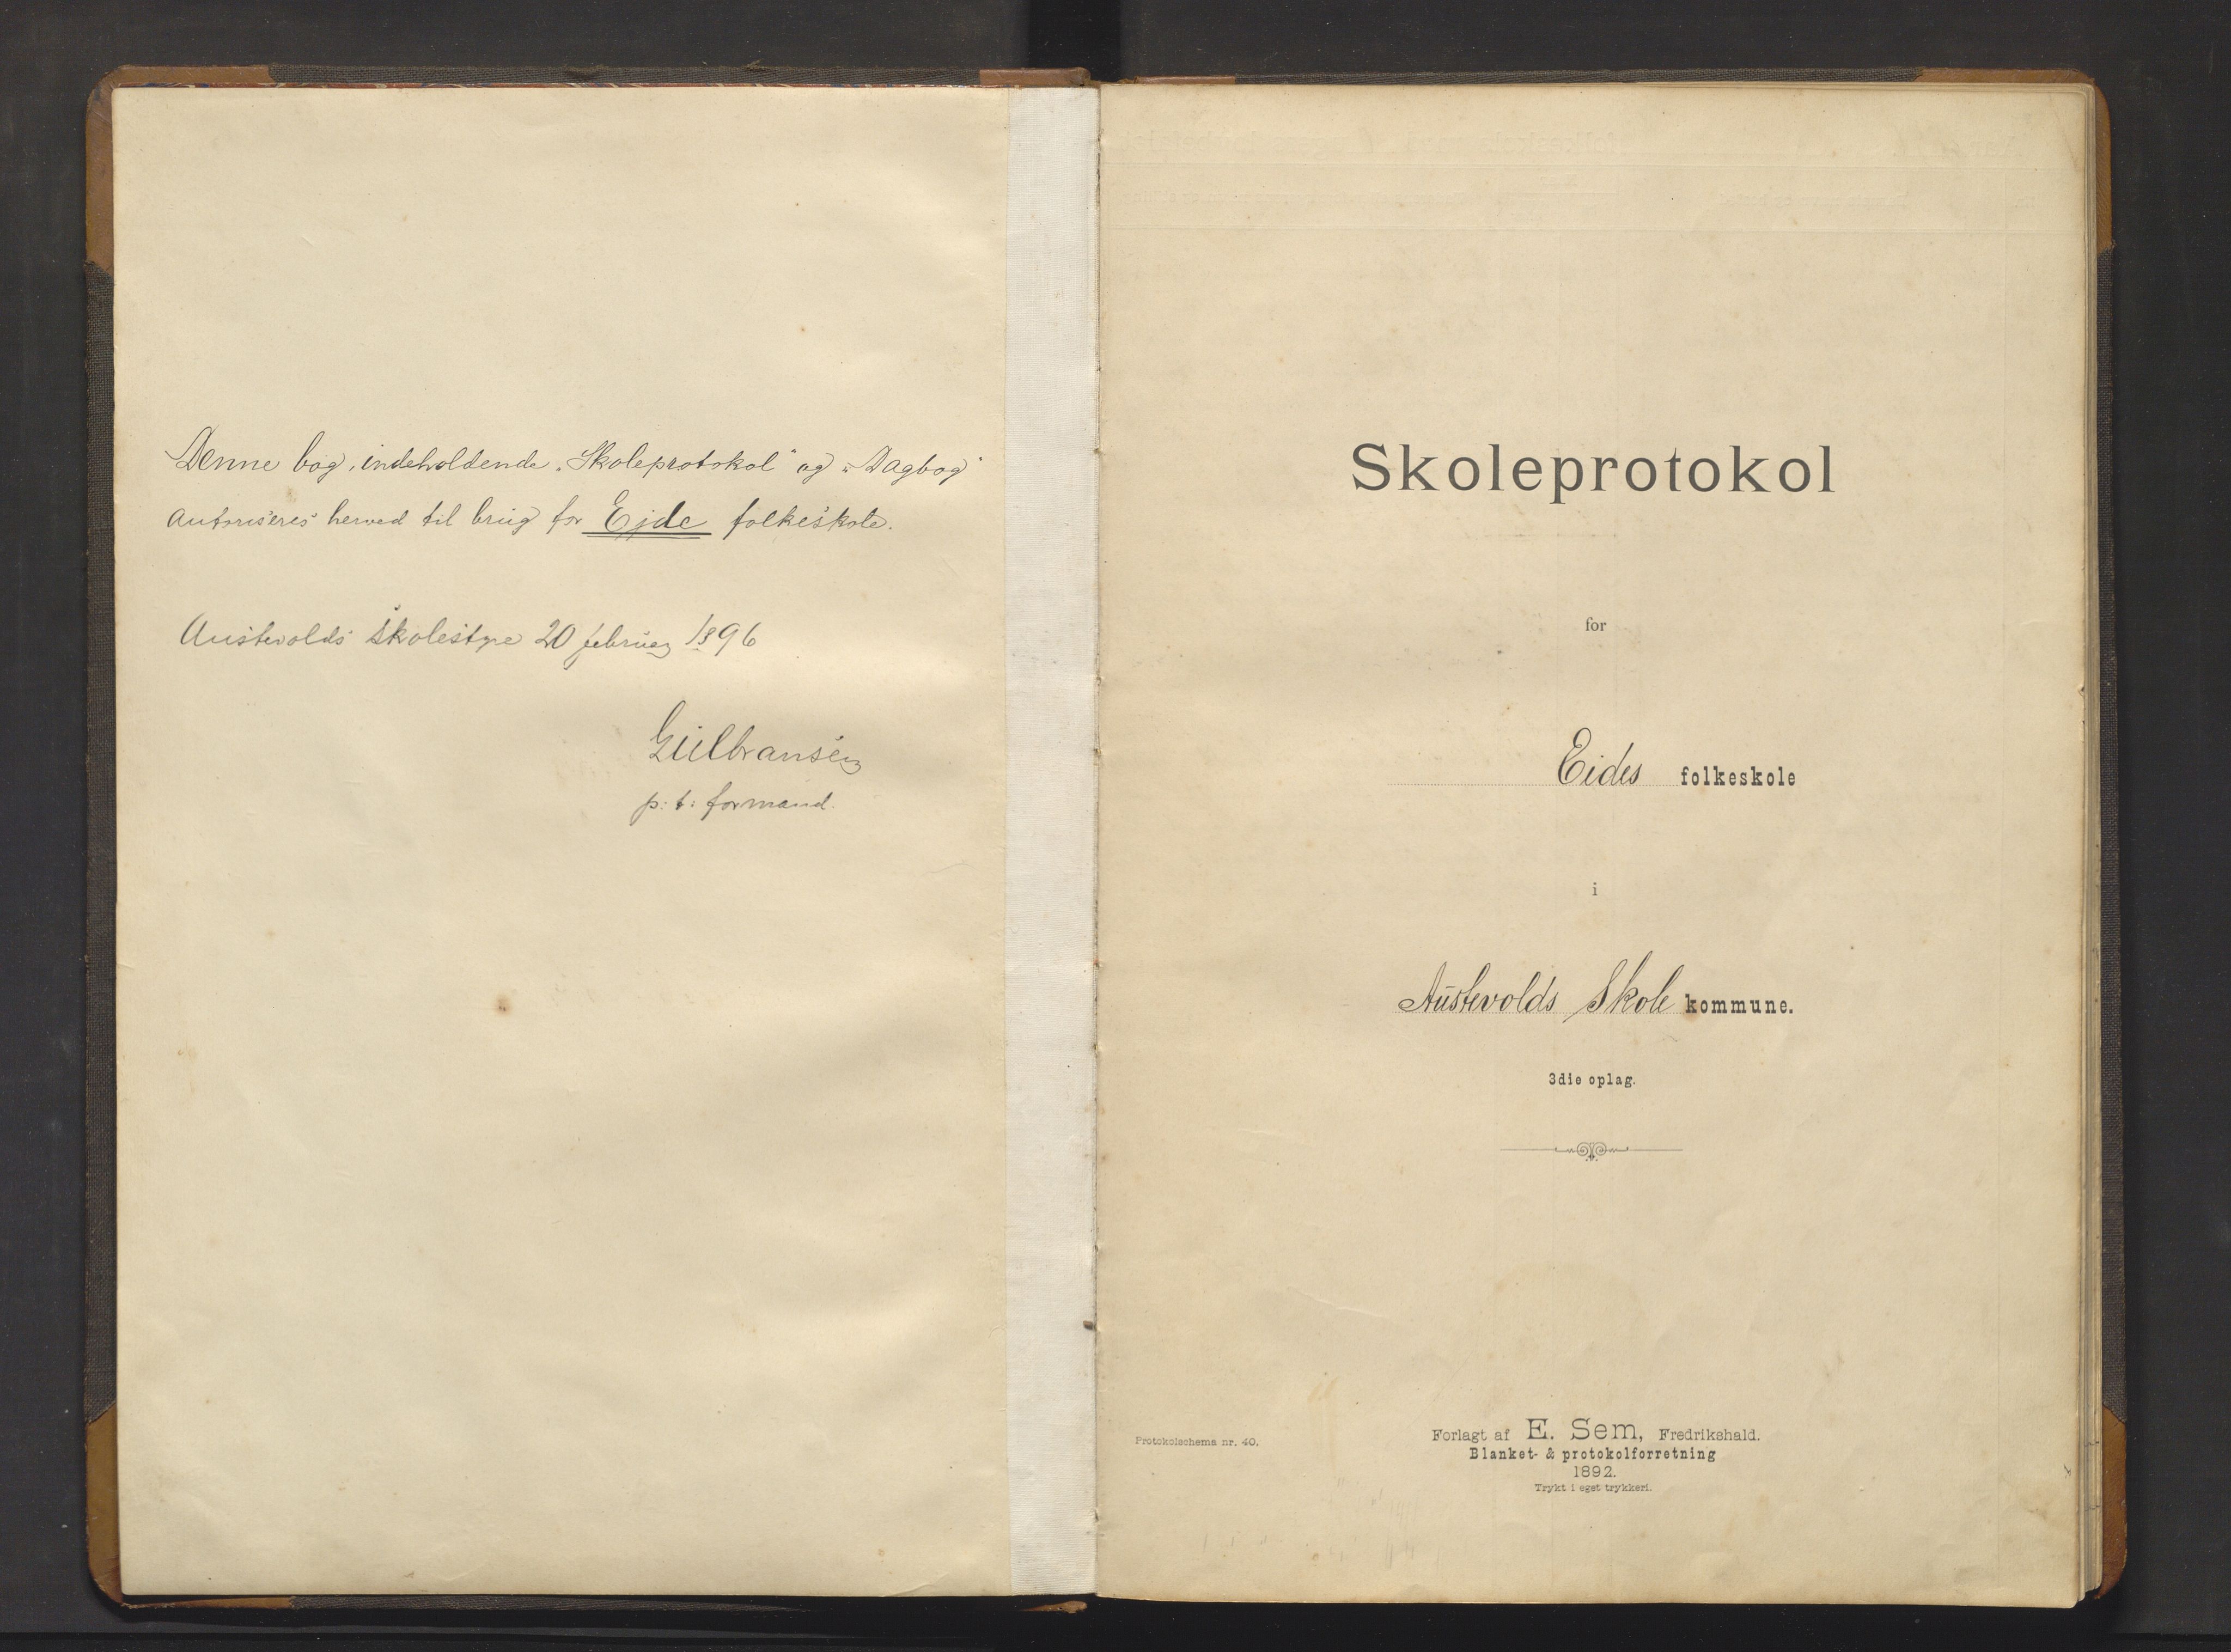 Denne bog, indeholdende „Skoleprotokol" og „Dagbog"
autoriseres herved til brug for Ejde folkeskole.
Austevolds skolestyre 20 februar 1896
Gulbransen
p: t: formand.
Skoleprotokol
for
Eides folkeskole
i
Austevolds Skole kommune.
3die oplag.
Protokolschema nr. 40.
Forlagt af E. Sem, Fredrikshald.
Blanket- & protokolforretning
1892.
Trykt i eget trykkeri.